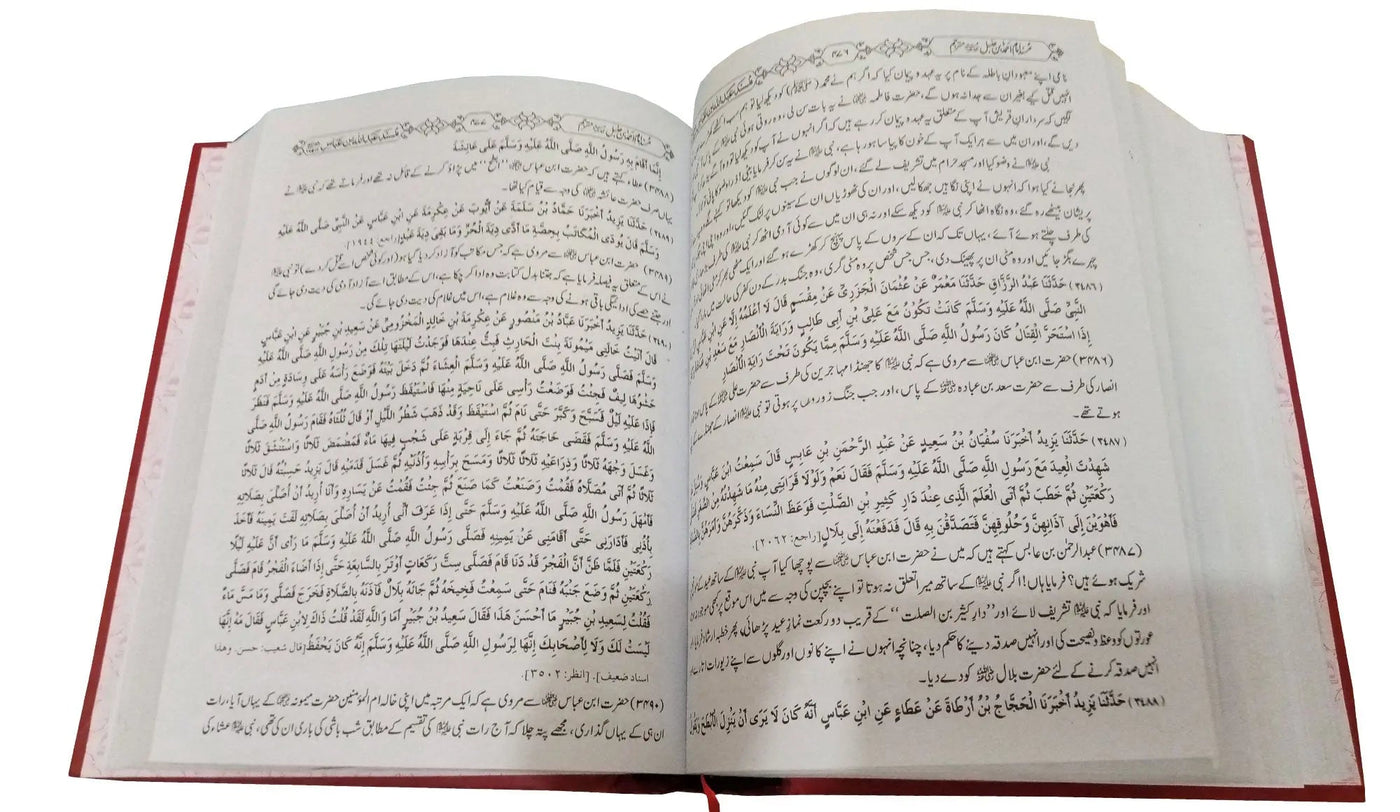 مسند امام احمد بن حنبل مترجم ۴۷۶
نامی اپنے معبودانِ باطلہ کے نام پر یہ عہد و پیمان کیا کہ اگر ہم نے محمد (ﷺ) کو دیکھ لیا تو ہم سب اکٹھے
انہیں قتل کیے بغیر ان سے جدا نہ ہوں گے، حضرت فاطمہ نے یہ بات سن لی، وہ روتی ہوئی نبی علیہ السلام کے پاس
لگیں کہ سردارانِ قریش آپ کے متعلق یہ عہد و پیمان کر رہے ہیں کہ اگر انہوں نے آپ کو دیکھ لیا تو وہ
دیں گے، اور ان میں سے ہر ایک آپ کے خون کا پیاسا ہو رہا ہے، نبی علیہ السلام نے یہ سن کر فرمایا بیٹی!
نبی علیہ السلام نے وضو کیا اور مسجد حرام میں تشریف لے گئے، ان لوگوں نے جب نبی علیہ السلام کو دیکھا تو کہنے لگے
پھر نجانے کیا ہوا کہ انہوں نے اپنی نگاہیں جھکا لیں، اور ان کی ٹھوڑیاں ان کے سینوں پر لٹک گئیں، اور وہ اپنی اپنی
پریشان بیٹھے رہ گئے، وہ نگاہ اٹھا کر نبی علیہ السلام کو دیکھ سکے اور نہ ہی ان میں سے کوئی آدمی اٹھ کر نبی علیہ السلام کی طرف
کی طرف چلتے ہوئے آئے، یہاں تک کہ ان کے سروں کے پاس پہنچ کر کھڑے ہو گئے اور ایک مٹھی بھر کر مٹی اٹھائی
چہرے بگڑ جائیں اور وہ مٹی ان پر پھینک دی، جس جس شخص پر وہ مٹی گری، وہ جنگ بدر کے دن کفر کی حالت میں
(۳۴۸۶) حَدَّثَنَا عَبْدُ الرَّزَّاقِ حَدَّثَنَا مَعْمَرٌ عَنْ عُثْمَانَ الْجَزَرِيِّ عَنْ مِقْسَمٍ قَالَ لَا أَعْلَمُهُ إِلَّا عَنِ ابْنِ
النَّبِيِّ صَلَّى اللَّهُ عَلَيْهِ وَسَلَّمَ كَانَتْ تَكُونُ مَعَ عَلِيِّ بْنِ أَبِي طَالِبٍ وَرَايَةَ الْأَنْصَارِ مَعَ سَعْدِ بْنِ
إِذَا اسْتَحَرَّ الْقِتَالُ كَانَ رَسُولُ اللَّهِ صَلَّى اللَّهُ عَلَيْهِ وَسَلَّمَ مِمَّا يَكُونُ تَحْتَ رَايَةِ الْأَنْصَارِ
(۳۴۸۶) حضرت ابن عباس سے مروی ہے کہ نبی علیہ السلام کا جھنڈا مہاجرین کی طرف سے حضرت علی کے پاس
انصار کی طرف سے حضرت سعد بن عبادہ کے پاس، اور جب جنگ زوروں پر ہوتی تو نبی علیہ السلام انصار کے جھنڈے کے
ہوتے تھے۔
(۳۴۸۷) حَدَّثَنَا يَزِيدُ أَخْبَرَنَا سُفْيَانُ بْنُ سَعِيدٍ عَنْ عَبْدِ الرَّحْمَنِ بْنِ عَابِسٍ قَالَ سَمِعْتُ ابْنَ عَبَّاسٍ
شَهِدْتَ الْعِيدَ مَعَ رَسُولِ اللَّهِ صَلَّى اللَّهُ عَلَيْهِ وَسَلَّمَ فَقَالَ نَعَمْ وَلَوْلَا قَرَابَتِي مِنْهُ مَا شَهِدْتُهُ مِنَ
رَكْعَتَيْنِ ثُمَّ خَطَبَ ثُمَّ أَتَى الْعَلَمَ الَّذِي عِنْدَ دَارِ كَثِيرِ بْنِ الصَّلْتِ فَوَعَظَ النِّسَاءَ وَذَكَّرَهُنَّ وَأَمَرَهُنَّ
فَأَهْوَيْنَ إِلَى آذَانِهِنَّ وَحُلُوقِهِنَّ فَتَصَدَّقْنَ بِهِ قَالَ فَدَفَعْنَهُ إِلَى بِلَالٍ [راجع: ٢٠٦٢].
(۳۴۸۷) عبدالرحمٰن بن عابس کہتے ہیں کہ میں نے حضرت ابن عباس سے پوچھا کیا آپ نبی علیہ السلام کے ساتھ عید کے
شریک ہوئے ہیں؟ فرمایا ہاں! اگر نبی علیہ السلام کے ساتھ میرا تعلق نہ ہوتا تو اپنے بچپن کی وجہ سے میں اس موقع پر کبھی موجود نہ
اور فرمایا کہ نبی علیہ السلام تشریف لائے اور ”دار کثیر بن الصلت“ کے قریب دو رکعت نماز عید پڑھائی، پھر خطبہ ارشاد فرمایا
عورتوں کو وعظ و نصیحت کی اور انہیں صدقہ دینے کا حکم دیا، چنانچہ انہوں نے اپنے کانوں اور گلوں سے اپنے زیورات اتارے
انہیں صدقہ کرنے کے لئے حضرت بلال کو دے دیا۔
(۳۴۸۸) حَدَّثَنَا يَزِيدُ أَخْبَرَنَا الْحَجَّاجُ بْنُ أَرْطَاةَ عَنْ عَطَاءٍ عَنِ ابْنِ عَبَّاسٍ أَنَّهُ كَانَ لَا يَرَى أَنْ يَنْزِلَ الْأَبْطَحَ وَيَقُولُ
مسند امام احمد بن حنبل مترجم ۴۷۷ مسند عبد اللہ بن عباس
إِنَّمَا أَقَامَ بِهِ رَسُولُ اللَّهِ صَلَّى اللَّهُ عَلَيْهِ وَسَلَّمَ عَلَى عَائِشَةَ
(۳۴۸۸) عطاء کہتے ہیں کہ حضرت ابن عباس ”ابطح“ میں پڑاؤ کرنے کے قائل نہ تھے اور فرماتے تھے کہ نبی علیہ السلام نے
یہاں صرف حضرت عائشہ کی وجہ سے قیام کیا تھا۔
(۳۴۸۹) حَدَّثَنَا يَزِيدُ أَخْبَرَنَا حَمَّادُ بْنُ سَلَمَةَ عَنْ أَيُّوبَ عَنْ عِكْرِمَةَ عَنِ ابْنِ عَبَّاسٍ عَنِ النَّبِيِّ صَلَّى اللَّهُ عَلَيْهِ
وَسَلَّمَ قَالَ يُودَى الْمُكَاتَبُ بِحِصَّةِ مَا أَدَّى دِيَةَ الْحُرِّ وَمَا بَقِيَ دِيَةَ عَبْدٍ [راجع: ١٩٤٤].
(۳۴۸۹) حضرت ابن عباس سے مروی ہے کہ جس مکاتب کو آزاد کر دیا گیا ہو (اور کوئی شخص اسے قتل کر دے) تو نبی علیہ السلام
نے اس کے متعلق یہ فیصلہ فرمایا ہے کہ جتنا بدل کتابت وہ ادا کر چکا ہے، اس کے مطابق اسے آزاد آدمی کی دیت دی جائے گی
اور جتنے حصے کی ادائیگی باقی ہونے کی وجہ سے وہ غلام ہے، اس میں غلام کی دیت دی جائے گی۔
(۳۴۹۰) حَدَّثَنَا يَزِيدُ أَخْبَرَنَا عَبَّادُ بْنُ مَنْصُورٍ عَنْ عِكْرِمَةَ بْنِ خَالِدٍ الْمَخْزُومِيِّ عَنْ سَعِيدِ بْنِ جُبَيْرٍ عَنِ ابْنِ عَبَّاسٍ
قَالَ أَتَيْتُ خَالَتِي مَيْمُونَةَ بِنْتَ الْحَارِثِ فَبِتُّ عِنْدَهَا فَوَجَدْتُ لَيْلَتَهَا تِلْكَ مِنْ رَسُولِ اللَّهِ صَلَّى اللَّهُ عَلَيْهِ
وَسَلَّمَ فَصَلَّى رَسُولُ اللَّهِ صَلَّى اللَّهُ عَلَيْهِ وَسَلَّمَ الْعِشَاءَ ثُمَّ دَخَلَ بَيْتَهُ فَوَضَعَ رَأْسَهُ عَلَى وِسَادَةٍ مِنْ أَدَمٍ
حَشْوُهَا لِيفٌ فَجِئْتُ فَوَضَعْتُ رَأْسِي عَلَى نَاحِيَةٍ مِنْهَا فَاسْتَيْقَظَ رَسُولُ اللَّهِ صَلَّى اللَّهُ عَلَيْهِ وَسَلَّمَ فَنَظَرَ
فَإِذَا عَلَيْهِ لَيْلٌ فَسَبَّحَ وَكَبَّرَ حَتَّى نَامَ ثُمَّ اسْتَيْقَظَ وَقَدْ ذَهَبَ شَطْرُ اللَّيْلِ أَوْ قَالَ ثُلُثَاهُ فَقَامَ رَسُولُ اللَّهِ صَلَّى
اللَّهُ عَلَيْهِ وَسَلَّمَ فَقَضَى حَاجَتَهُ ثُمَّ جَاءَ إِلَى قِرْبَةٍ عَلَى شَجْبٍ فِيهَا مَاءٌ فَمَضْمَضَ ثَلَاثًا وَاسْتَنْشَقَ ثَلَاثًا
وَغَسَلَ وَجْهَهُ ثَلَاثًا وَذِرَاعَيْهِ ثَلَاثًا ثَلَاثًا وَمَسَحَ بِرَأْسِهِ وَأُذُنَيْهِ ثُمَّ غَسَلَ قَدَمَيْهِ قَالَ يَزِيدُ حَسِبْتُهُ قَالَ ثَلَاثًا
ثَلَاثًا ثُمَّ أَتَى مُصَلَّاهُ فَقُمْتُ وَصَنَعْتُ كَمَا صَنَعَ ثُمَّ جِئْتُ فَقُمْتُ عَنْ يَسَارِهِ وَأَنَا أُرِيدُ أَنْ أُصَلِّيَ بِصَلَاتِهِ
فَأَمْهَلَ رَسُولُ اللَّهِ صَلَّى اللَّهُ عَلَيْهِ وَسَلَّمَ حَتَّى إِذَا عَرَفَ أَنِّي أُرِيدُ أَنْ أُصَلِّيَ بِصَلَاتِهِ لَفَتَ يَمِينَهُ فَأَخَذَ
بِأُذُنِي فَأَدَارَنِي حَتَّى أَقَامَنِي عَنْ يَمِينِهِ فَصَلَّى رَسُولُ اللَّهِ صَلَّى اللَّهُ عَلَيْهِ وَسَلَّمَ مَا رَأَى أَنَّ عَلَيْهِ لَيْلًا
رَكْعَتَيْنِ فَلَمَّا ظَنَّ أَنَّ الْفَجْرَ قَدْ دَنَا قَامَ فَصَلَّى سِتَّ رَكَعَاتٍ أَوْتَرَ بِالسَّابِعَةِ حَتَّى إِذَا أَضَاءَ الْفَجْرُ قَامَ فَصَلَّى
رَكْعَتَيْنِ ثُمَّ وَضَعَ جَنْبَهُ فَنَامَ حَتَّى سَمِعْتُ فَخِيخَهُ ثُمَّ جَاءَهُ بِلَالٌ فَآذَنَهُ بِالصَّلَاةِ فَخَرَجَ فَصَلَّى وَمَا مَسَّ مَاءً
فَقُلْتُ لِسَعِيدِ بْنِ جُبَيْرٍ مَا أَحْسَنَ هَذَا فَقَالَ سَعِيدُ بْنُ جُبَيْرٍ أَمَا وَاللَّهِ لَقَدْ قُلْتُ ذَاكَ لِابْنِ عَبَّاسٍ فَقَالَ مَهْ إِنَّهَا
لَيْسَتْ لَكَ وَلَا لِأَصْحَابِكَ إِنَّهَا لِرَسُولِ اللَّهِ صَلَّى اللَّهُ عَلَيْهِ وَسَلَّمَ إِنَّهُ كَانَ يُحْفَظُ [قال شعيب: حسن، وهذا
اسناد ضعيف]. [انظر: ٣٥٠٢].
(۳۴۹۰) حضرت ابن عباس سے مروی ہے کہ ایک مرتبہ میں اپنی خالہ ام المؤمنین حضرت میمونہ کے یہاں آیا، رات
ان ہی کے یہاں گذاری، مجھے پتہ چلا کہ آج رات نبی علیہ السلام کی تقسیم کے مطابق شب باشی کی باری ان کی تھی، نبی علیہ السلام عشاء کی